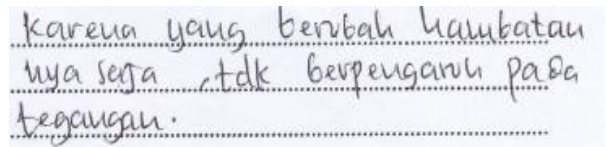 Karena yang berubah hambatan
nya saja , tdk berpengaruh pada
tegangan.